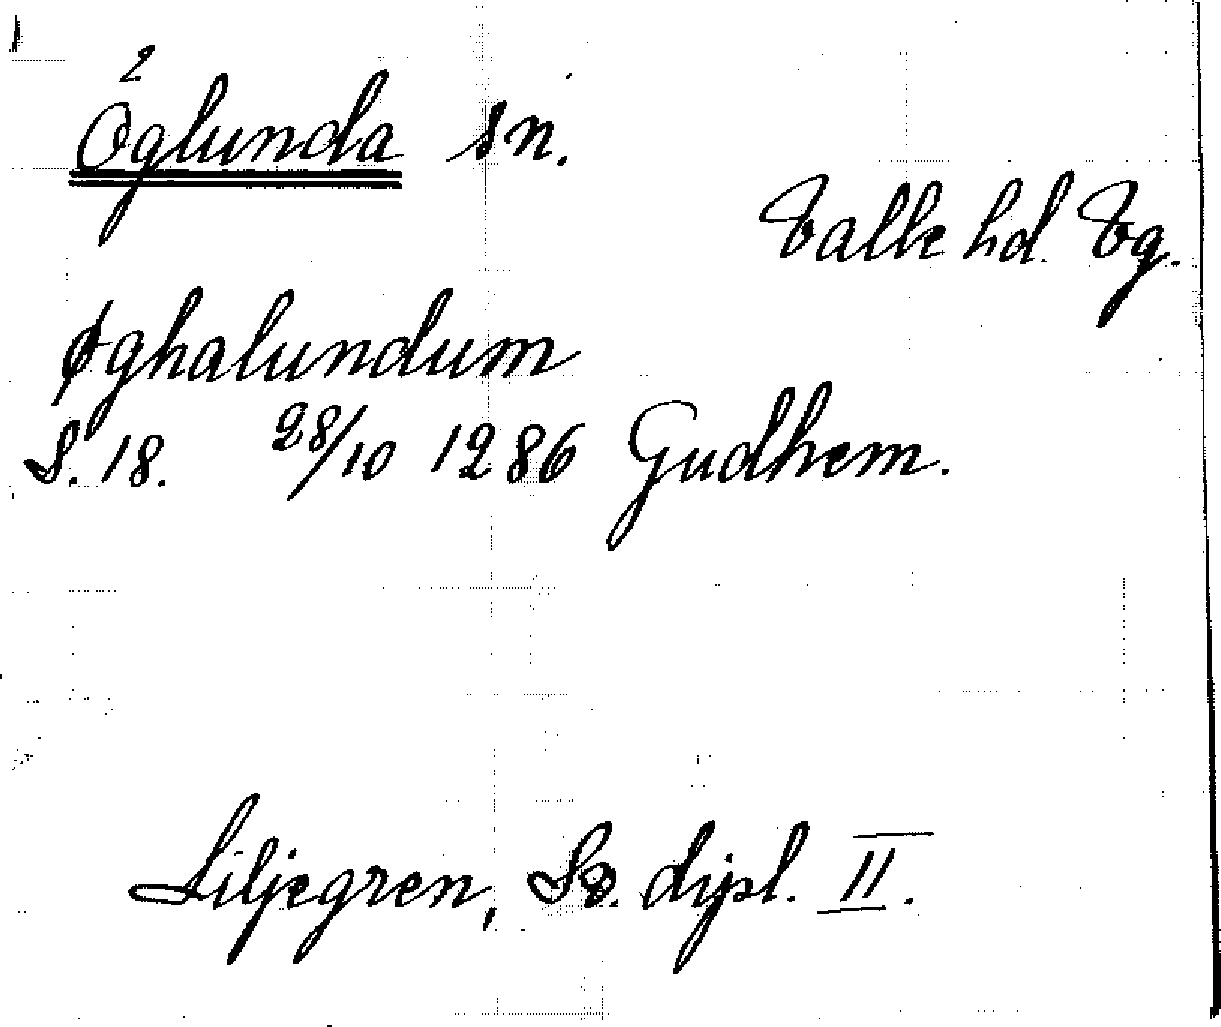 Öglunda sn.
Valle hd. Vg.
Øghalundum
S. 18. 28/10 1286 Gudhem.
Liljegren, Sv. dipl. II.